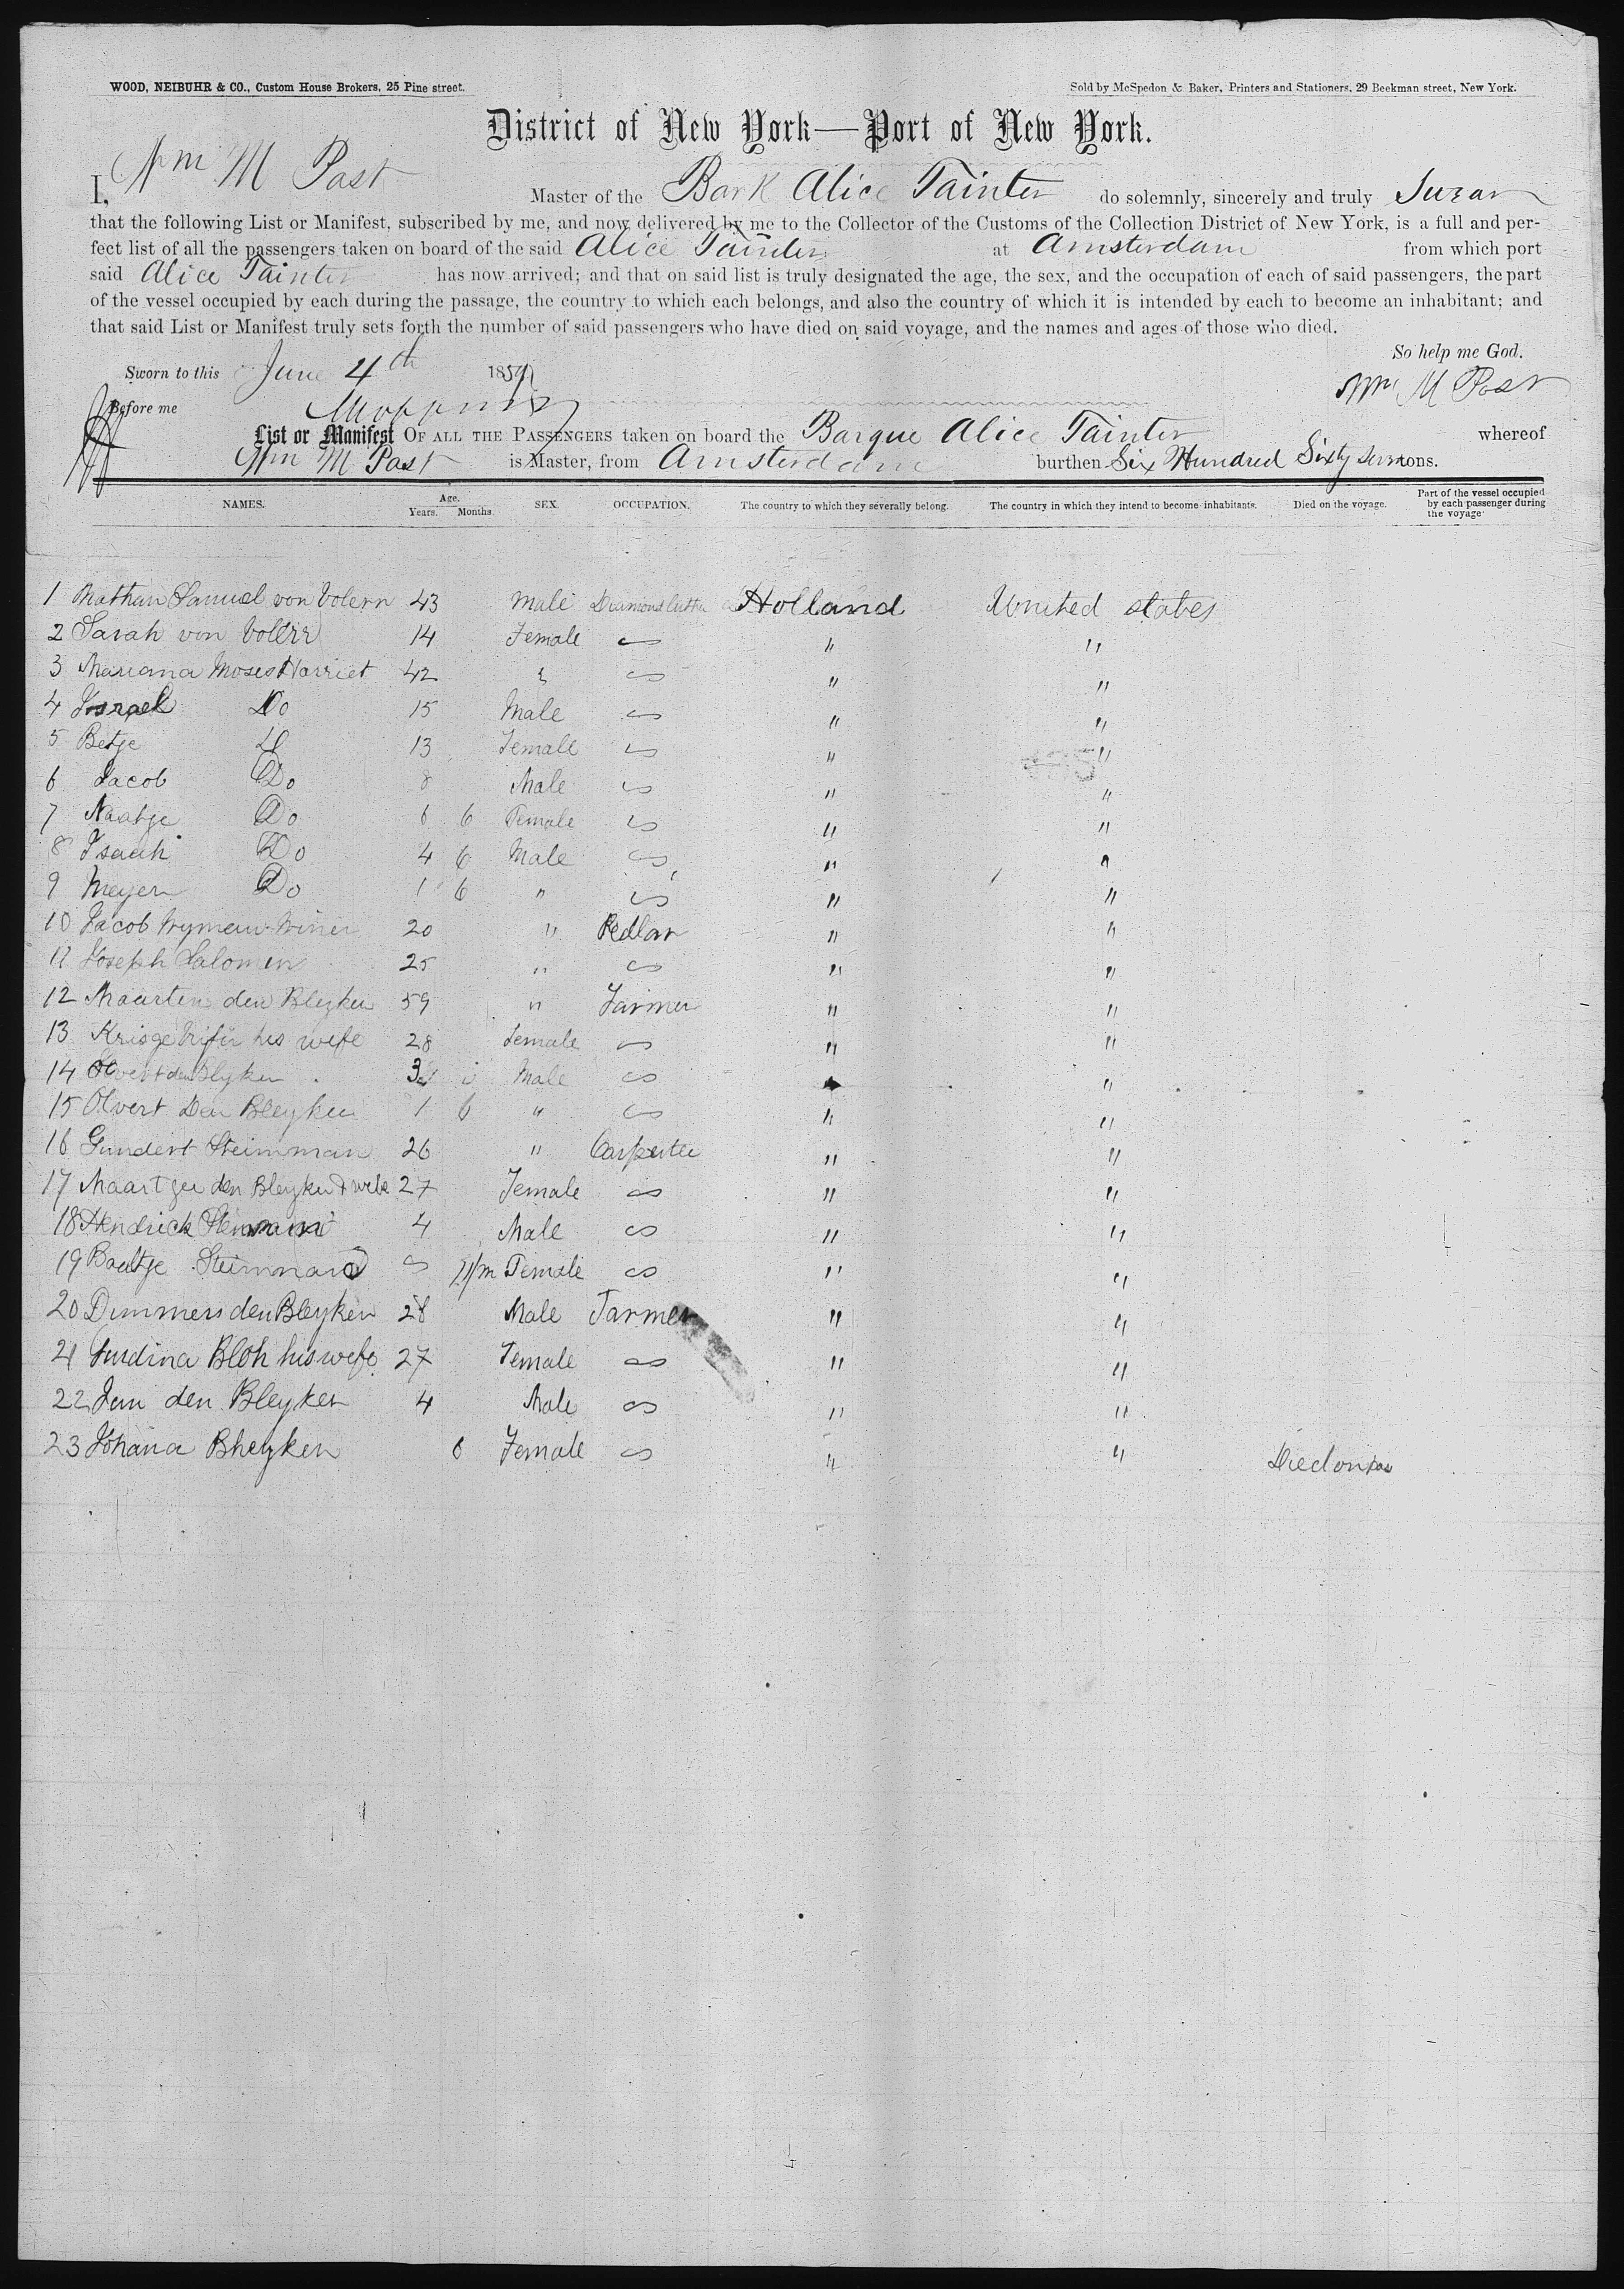 WOOD, NEIBUHR & CO., Custom House Brokers, 25 Pine street. Sold by McSpedon & Baker, Printers and Stationers, 29 Beekman street, New York.
District of New York—Port of New York.
I, Wm M Post Master of the Bark Alice Tainter do solemnly, sincerely and truly Swear
that the following List or Manifest, subscribed by me, and now delivered by me to the Collector of the Customs of the Collection District of New York, is a full and per-
fect list of all the passengers taken on board of the said Alice Tainter at Amsterdam from which port
said Alice Tainter has now arrived; and that on said list is truly designated the age, the sex, and the occupation of each of said passengers, the part
of the vessel occupied by each during the passage, the country to which each belongs, and also the country of which it is intended by each to become an inhabitant; and
that said List or Manifest truly sets forth the number of said passengers who have died on said voyage, and the names and ages of those who died.
So help me God.
Sworn to this June 4th 1859
Wm M Post
Before me
List or Manifest OF ALL THE PASSENGERS taken on board the Barque Alice Tainter whereof
Wm M Post is Master, from Amsterdam burthen Six Hundred Sixty tons.
NAMES. Age. Years. Months. SEX. OCCUPATION. The country to which they severally belong. The country in which they intend to become inhabitants. Died on the voyage. Part of the vessel occupied by each passenger during the voyage
1 Nathan Samuel von Volern 43 Male Diamond Cutter Holland United states
2 Sarah von 14 Female " "
3 Mariana Moses Harriet 42 " "
4 Israel Do 15 Male " "
5 Betje Do 13 Female " "
6 Jacob Do 8 Male " "
7 Naatje Do 6 6 Female " "
8 Isaak Do 4 6 Male " "
9 Meyer Do 1 6 " " "
10 Jacob 20 " Pedlar " "
11 Joseph Salomen 25 " " "
12 Maarten den Bleyker 59 " Farmer " "
13 his wife 28 Female " "
14 den Blyker 3 Male " "
15 Olvert Den Bleyker 1 6 " " "
16 Gundert Steinman 26 " Carpenter " "
17 den Bleyker wife 27 Female " "
18 Hendrick 4 Male " "
19 Baatje Steinman 11/m Female " "
20 Dimmers den Bleyken 28 Male Farmer " "
21 his wife 27 Female " "
22 Jan den Bleyker 4 Male " "
23 Johana Bheyken 6 Female " " Died on